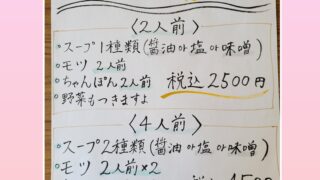 〈2人前〉
・スープ1種類(醤油or塩or味噌)
・モツ 2人前
・ちゃんぽん2人前 税込2500円
・野菜もつきますよ
〈4人前〉
・スープ2種類(醤油or塩or味噌)
・モツ 2人前×2